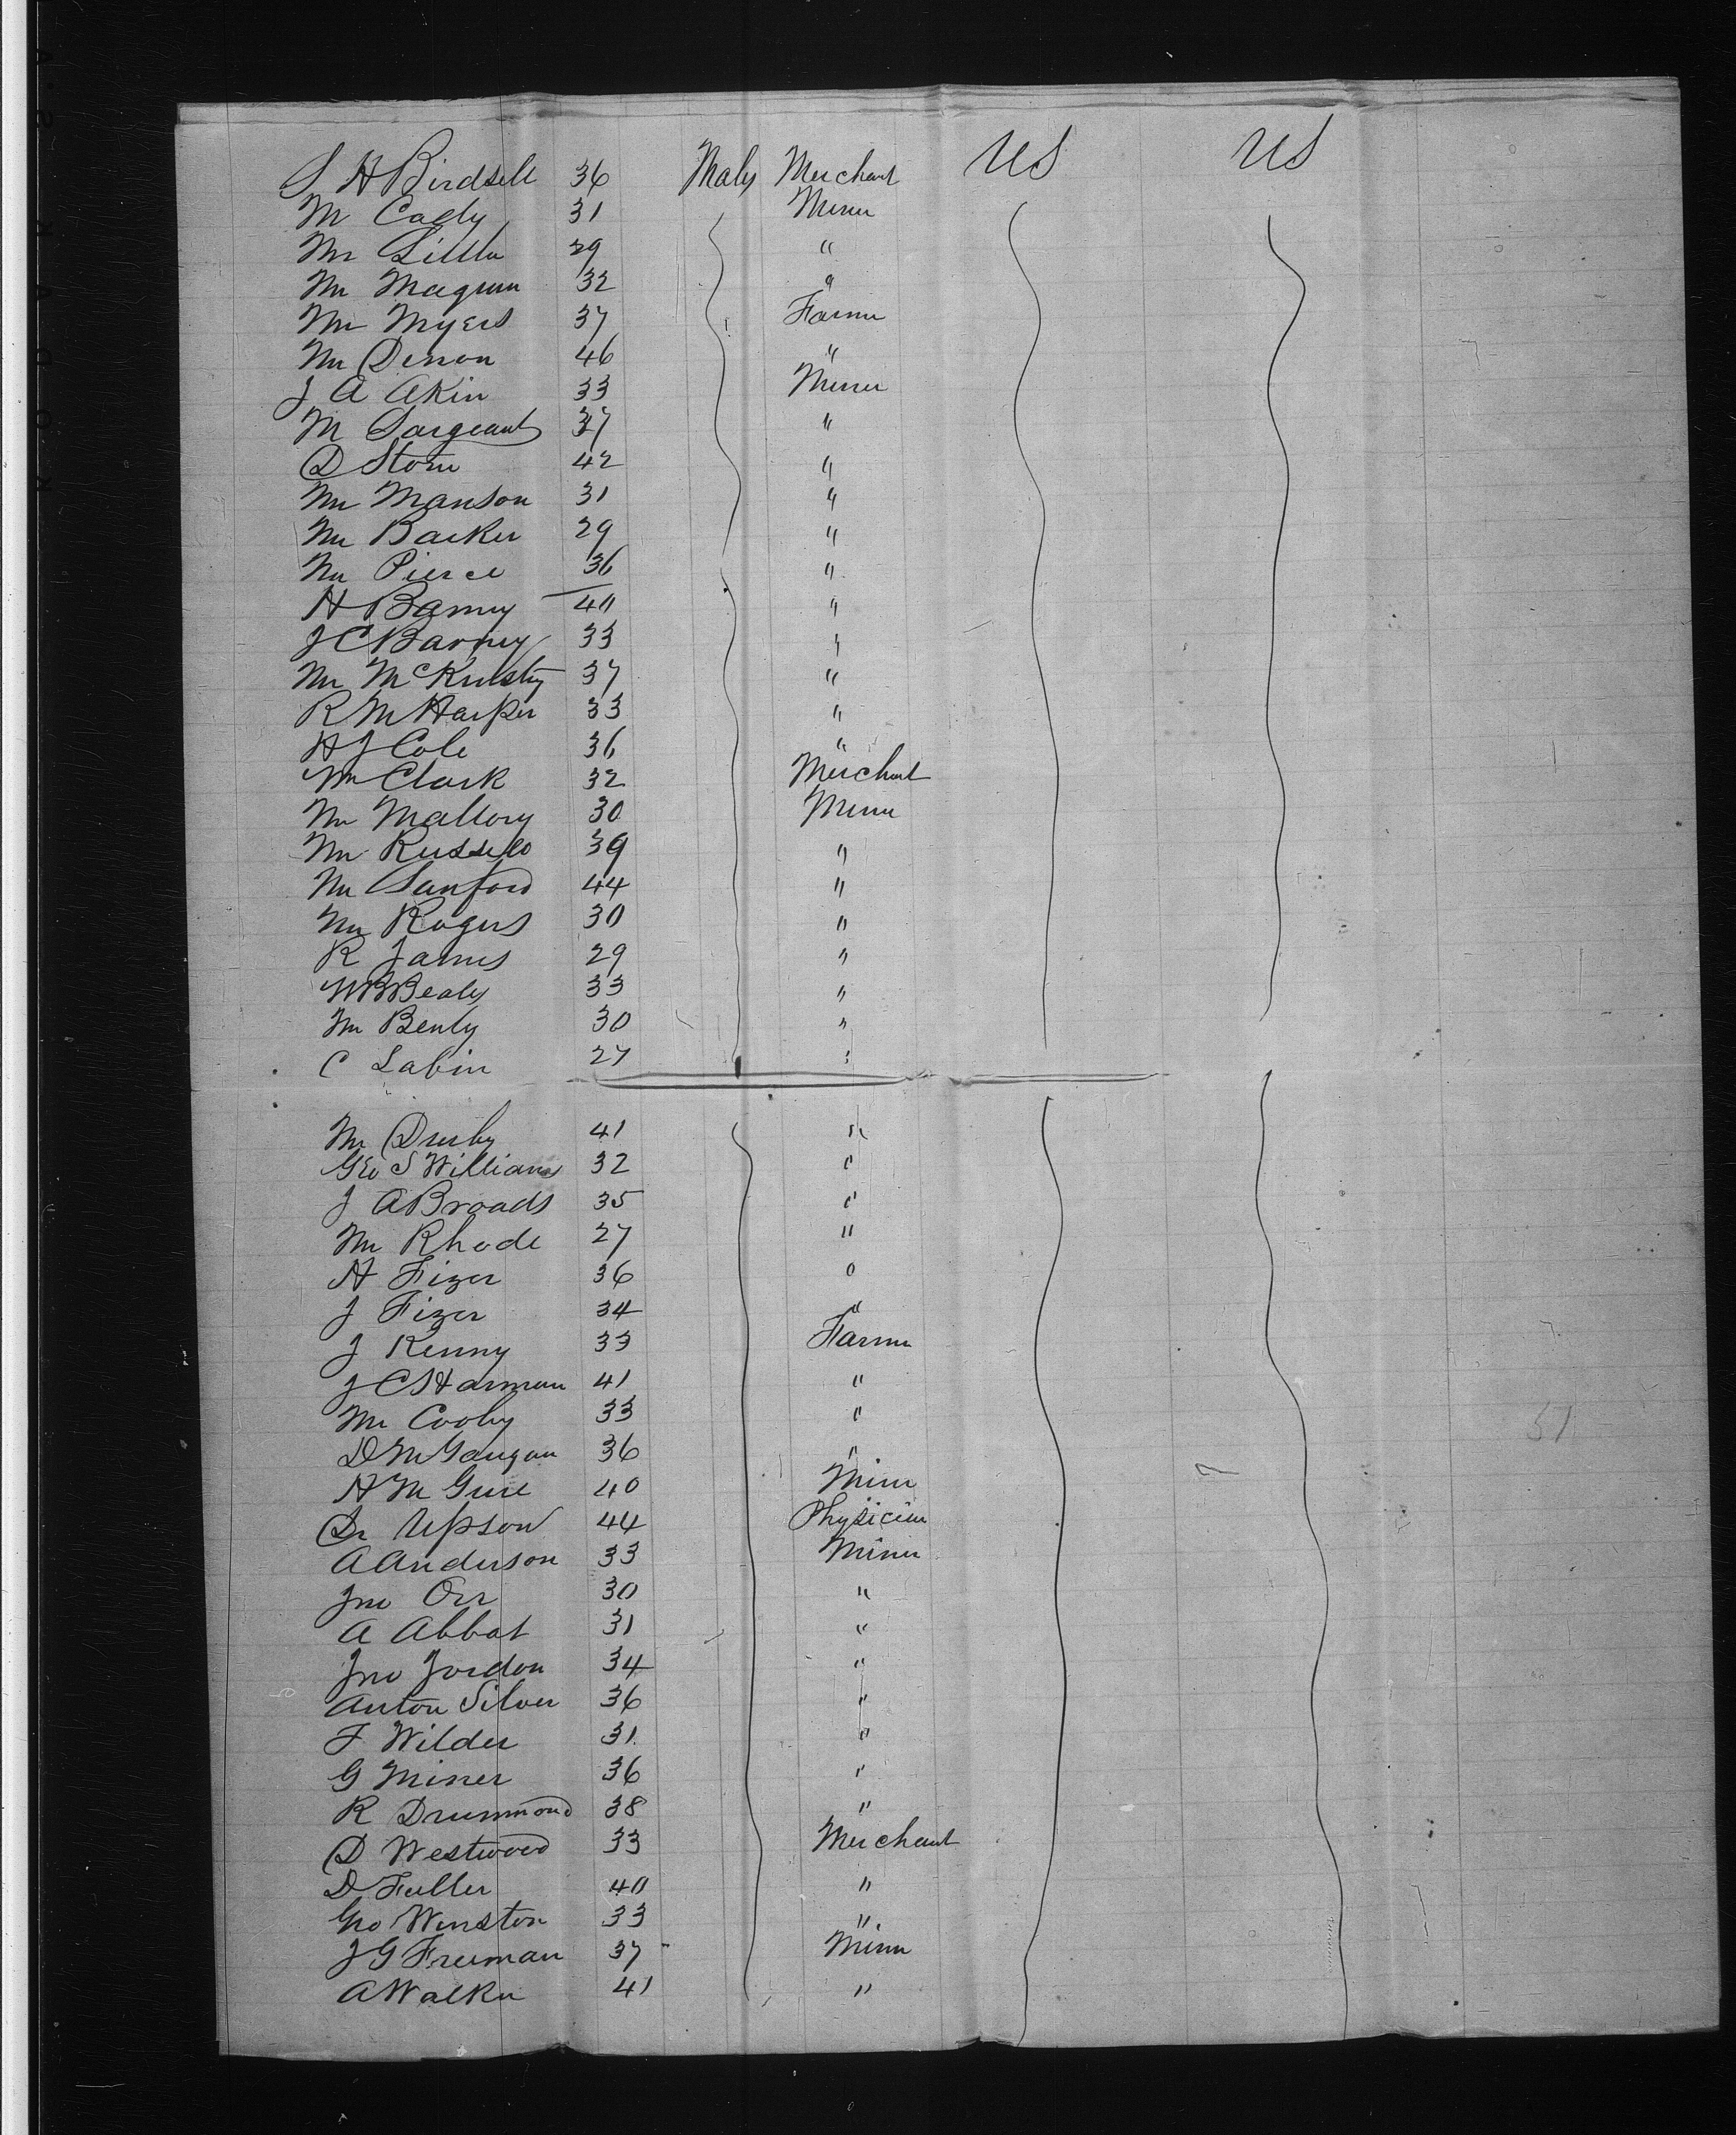 S H Birdsell 36 Males Merchant US US
M Cady 31 Miner
Mr Little 29 "
Mr Magrum 32 "
Mr Myers 37 Farmer
Mr Denon 46 "
J A Akin 33 Miner
M Sargeant 37 "
D Storn 42 "
Mr Manson 31 "
Mr Barker 29 "
Mr Pierce 36 "
H Barney 40 "
J C Barney 33 "
Mr McKinsty 37 "
R M Harper 33 "
H J Cole 36 "
Mr Clark 32 Merchant
Mr Mallory 30 Miner
Mr Russell 39 "
Mr Sanford 44 "
Mr Rogers 30 "
R James 29 "
W B Bealy 33 "
Mr Benly 30 "
C Labin 27 "
Mr Dersby 41 "
Geo S Williams 32 "
J A Broads 35 "
Mr Rhode 27 "
H Fizer 36 "
J Fizer 34 "
J Kenny 33 Farmer
J C Harman 41 "
Mr Cooby 33 "
D McGaugan 36 "
H McGuire 40 Miner
Dr Upson 44 Physician
A Anderson 33 Miner
Jno Orr 30 "
A Abbat 31 "
Jno Jordon 34 "
Anton Silver 36 "
F Wilder 31 "
G Miner 36 "
R Drummond 38 "
D Westwood 33 Merchant
D Fuller 40 "
Geo Winston 33 "
J G Freeman 37 Miner
A Walker 41 "